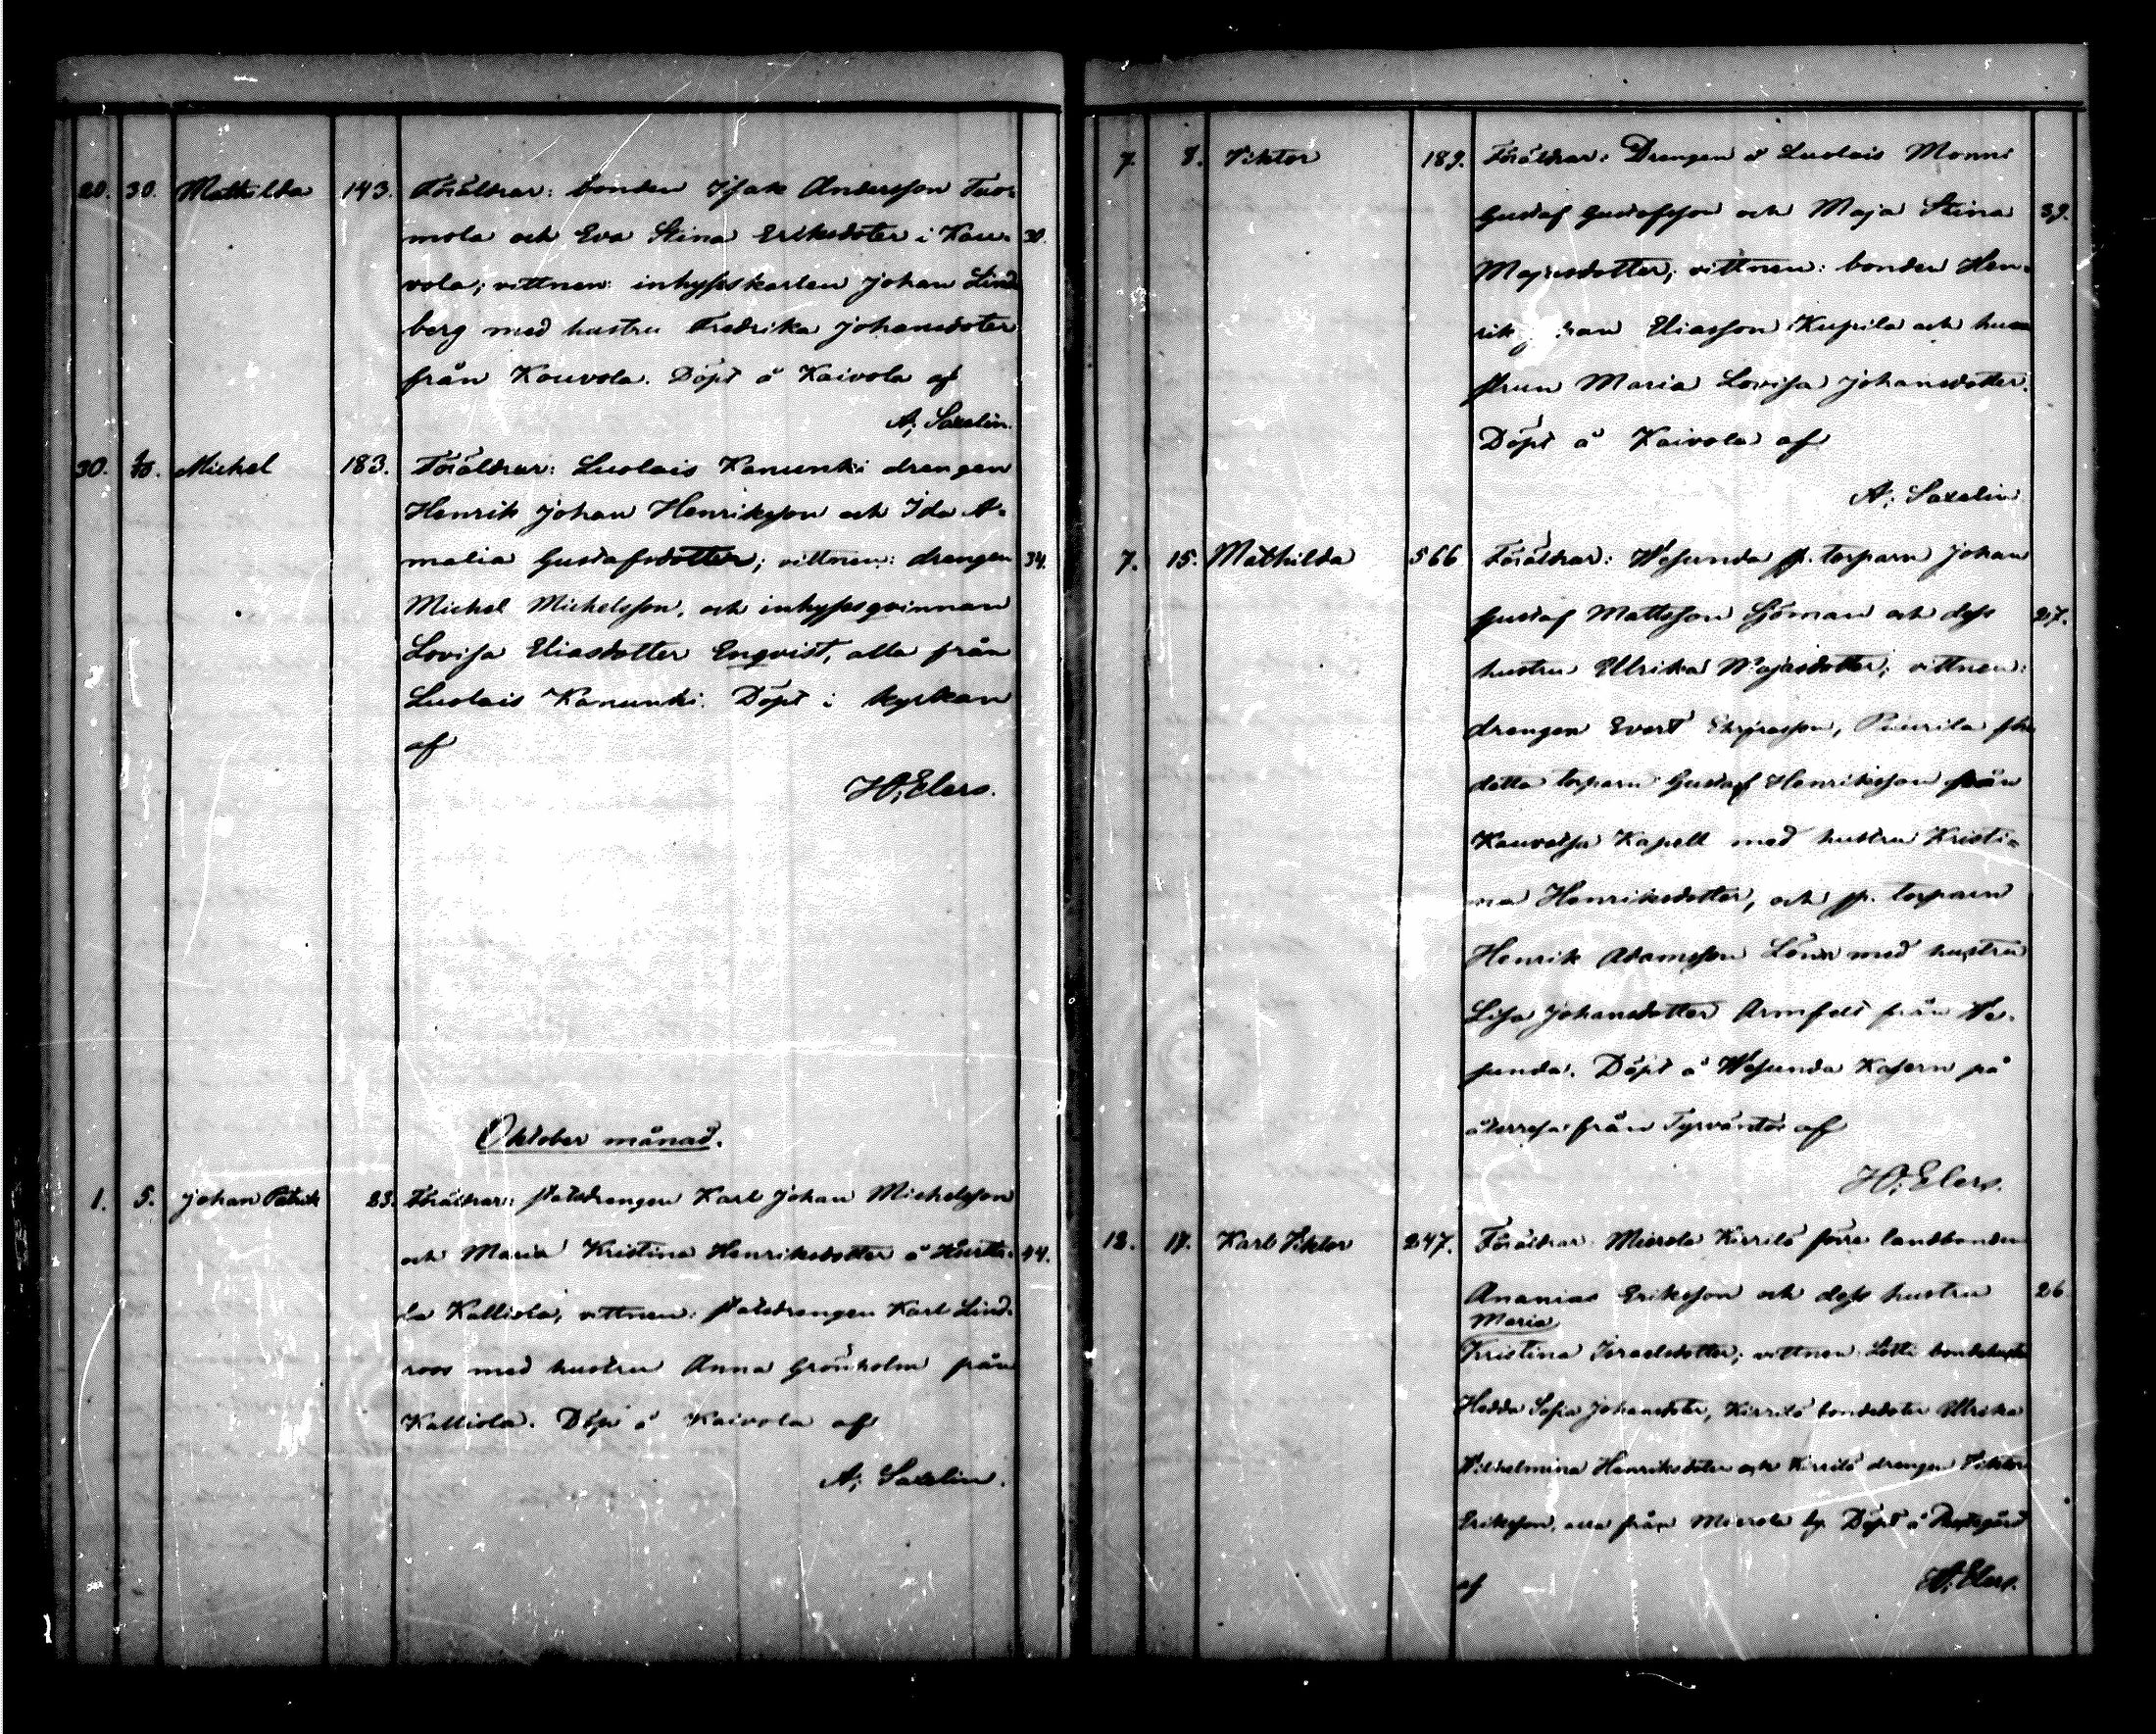 20. 30. Mathilda 143. Föräldrar: bonden Isak Andersson Tuo-
mola och Eva Stina Eriksdoter i Kau- 30.
vola; vittnen: inhyseskarlen Johan Lind
berg med hustru Fredrika Johansdoter
från Kouvola. Döpt å Kaivola af
A; Saxelin.
30. Michel 183. Föräldrar: Luolais Kanunki drengen
Henrik Johan Henriksson och Ida A-
malia Gustafsdotter; vittnen: drengen 34.
Michel Michelsson, och inhysesqvinnan
Lovisa Eliasdotter Enqvist, alla från
Luolais Kanunki. Döpt i kyrkan
af
H; Elers.
Oktober månad.
1. 5. Johan Patrik 23. Föräldrar: statdrengen Karl Johan Michelsson
och Maria Kristina Henriksdotter å Hurtta- 44.
la Kalliola; vittnen: statdrengen Karl Lind-
roos med hustru Anna Grönholm från
Kalliola. Döpt å Kaivola af
A; Saxelin.
7. 8. Viktor 189. Föräldrar: Drengen å Luolais Monni
Gustaf Gustafsson och Maja Stina 39.
Majasdotter; vittnen: bonden Hen-
rik Eliasson Kupila och hu
strun Maria Lovisa Johansdotter.
Döpt å Kaivola af
A; Saxelin
7. 15. Mathilda 566 Föräldrar: Wesunda sk. torparn Johan
Gustaf Mattsson Sjöman och dess 27.
hustru Ulrika Majasdotter; vittnen:
drengen Evert
detta torparn Gustaf Henriksson från
Kauvatsa Kapell med hustru Kristi-
na Henriksdotter, och sk. torparn
Henrik Adamsson Lönn med hustru
Lisa Johansdotter Armfelt från We-
sunda. Döpt å Wesunda Kasern på
återresa från Tyrväntö af
H; Elers.
12. 17. Karl Viktor 247. Föräldrar: Mierola Kirrilö förre landbonden
Ananias Eriksson och dess hustru 26
Maria
Kristina Israelsdotter; vittnen: Lotti bondehustr
Hedda Sofia Johansdoter, Kirrilö bondedoter Ulrika
Wilhelmina Henriksdoter och Kirrilö drengen Viktor
Eriksson, alla från Mierola by. Döpt å Prestgård
af H; Elers.